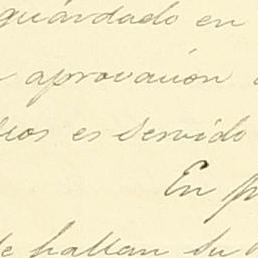 guardado en
aprovacion
es servido
En
hallan su